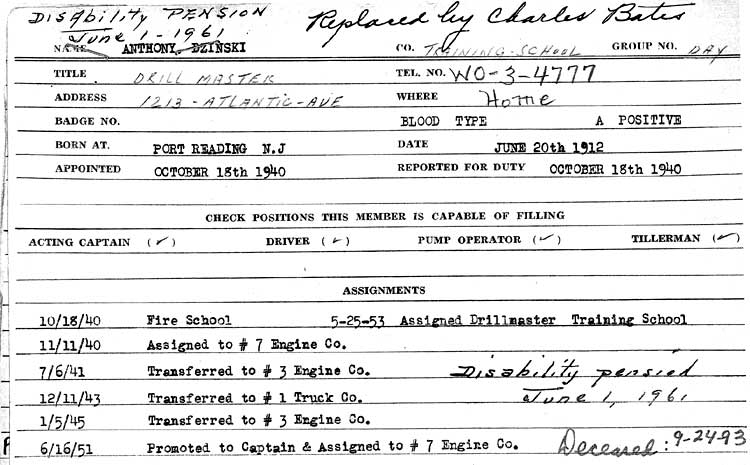 DISABILITY PENSION Replaced by Charles Bates
JUNE 1 - 1961
NAME ANTHONY DZINSKI CO. TRAINING-SCHOOL GROUP NO. DAY
TITLE DRILL MASTER TEL. NO. WO-3-4777
ADDRESS 1213-ATLANTIC-AVE WHERE Home
BADGE NO. BLOOD TYPE A POSITIVE
BORN AT. PORT READING N.J DATE JUNE 20th 1912
APPOINTED OCTOBER 18th 1940 REPORTED FOR DUTY OCTOBER 18th 1940
CHECK POSITIONS THIS MEMBER IS CAPABLE OF FILLING
ACTING CAPTAIN (✓) DRIVER (✓) PUMP OPERATOR (✓) TILLERMAN (✓)
ASSIGNMENTS
10/18/40 Fire School 5-25-53 Assigned Drillmaster Training School
11/11/40 Assigned to # 7 Engine Co.
7/6/41 Transferred to # 3 Engine Co. Disability pensied
12/11/43 Transferred to # 1 Truck Co. June 1, 1961
1/5/45 Transferred to # 3 Engine Co.
6/16/51 Promoted to Captain & Assigned to # 7 Engine Co. Deceased: 9-24-93